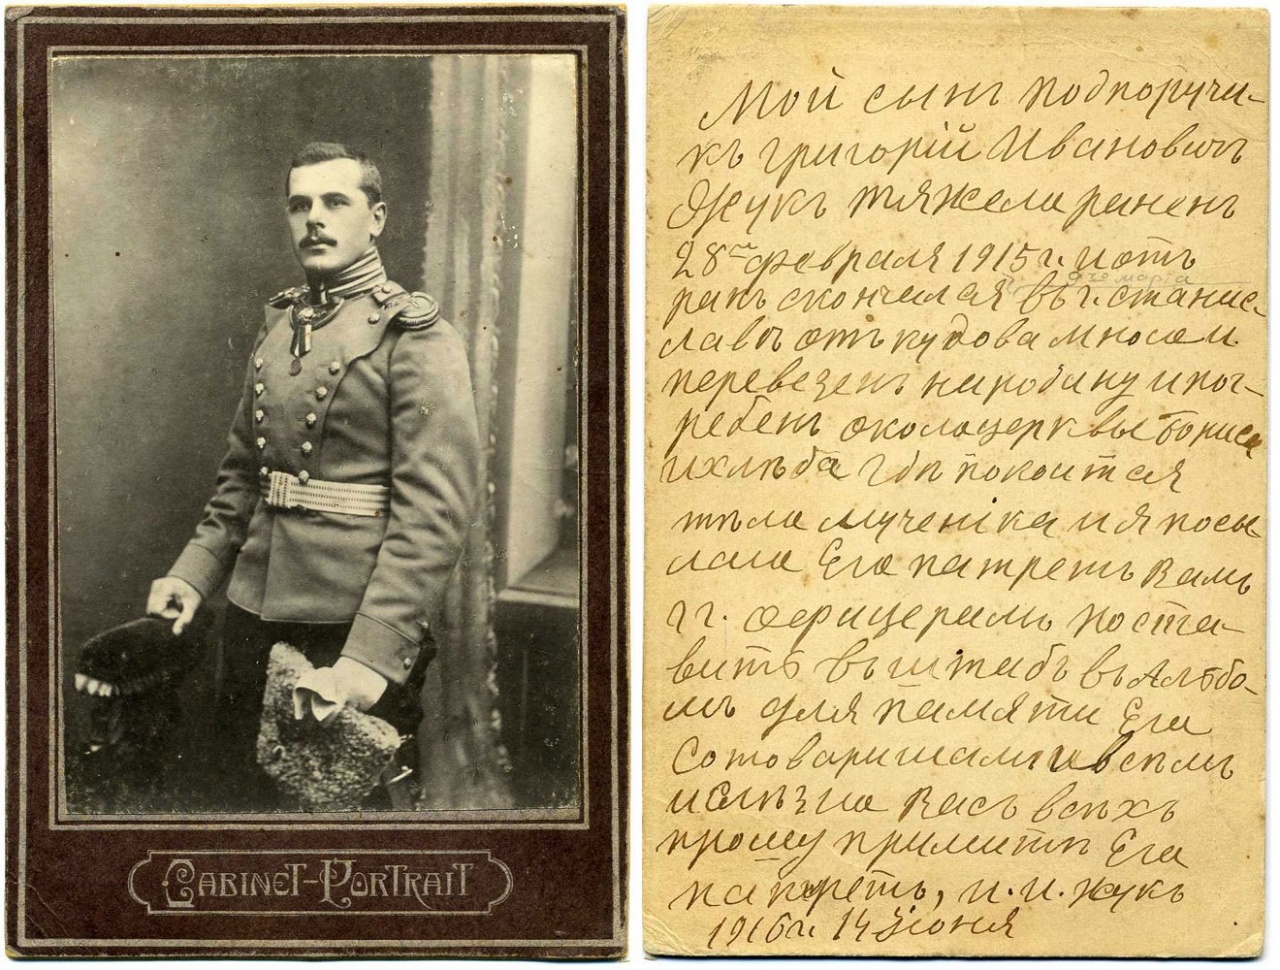 CABINET-PORTRAIT
Мой сынъ подпоручи-
къ григорій Ивановичъ
Жукъ тяжела раненъ
28го февраля 1915 г. и отъ
марта
ранъ скончался въ г. станис-
лавъ отъ кудова мною
перевезенъ народину и пог-
ребенъ околацеркьвы Бориса
ихлѣба гдѣ покоится
тѣла мученіка и я посы
лаю Его патретъ Вамъ
гг. офицерамъ поста-
вить въ штабъ въ Альбо-
мъ для памяти Его
Сотоваришами и всѣмъ
и слѣзна Васъ всѣхъ
прошу примите Его
патретъ, И. И. Жукъ
1916 г. 14 Июня